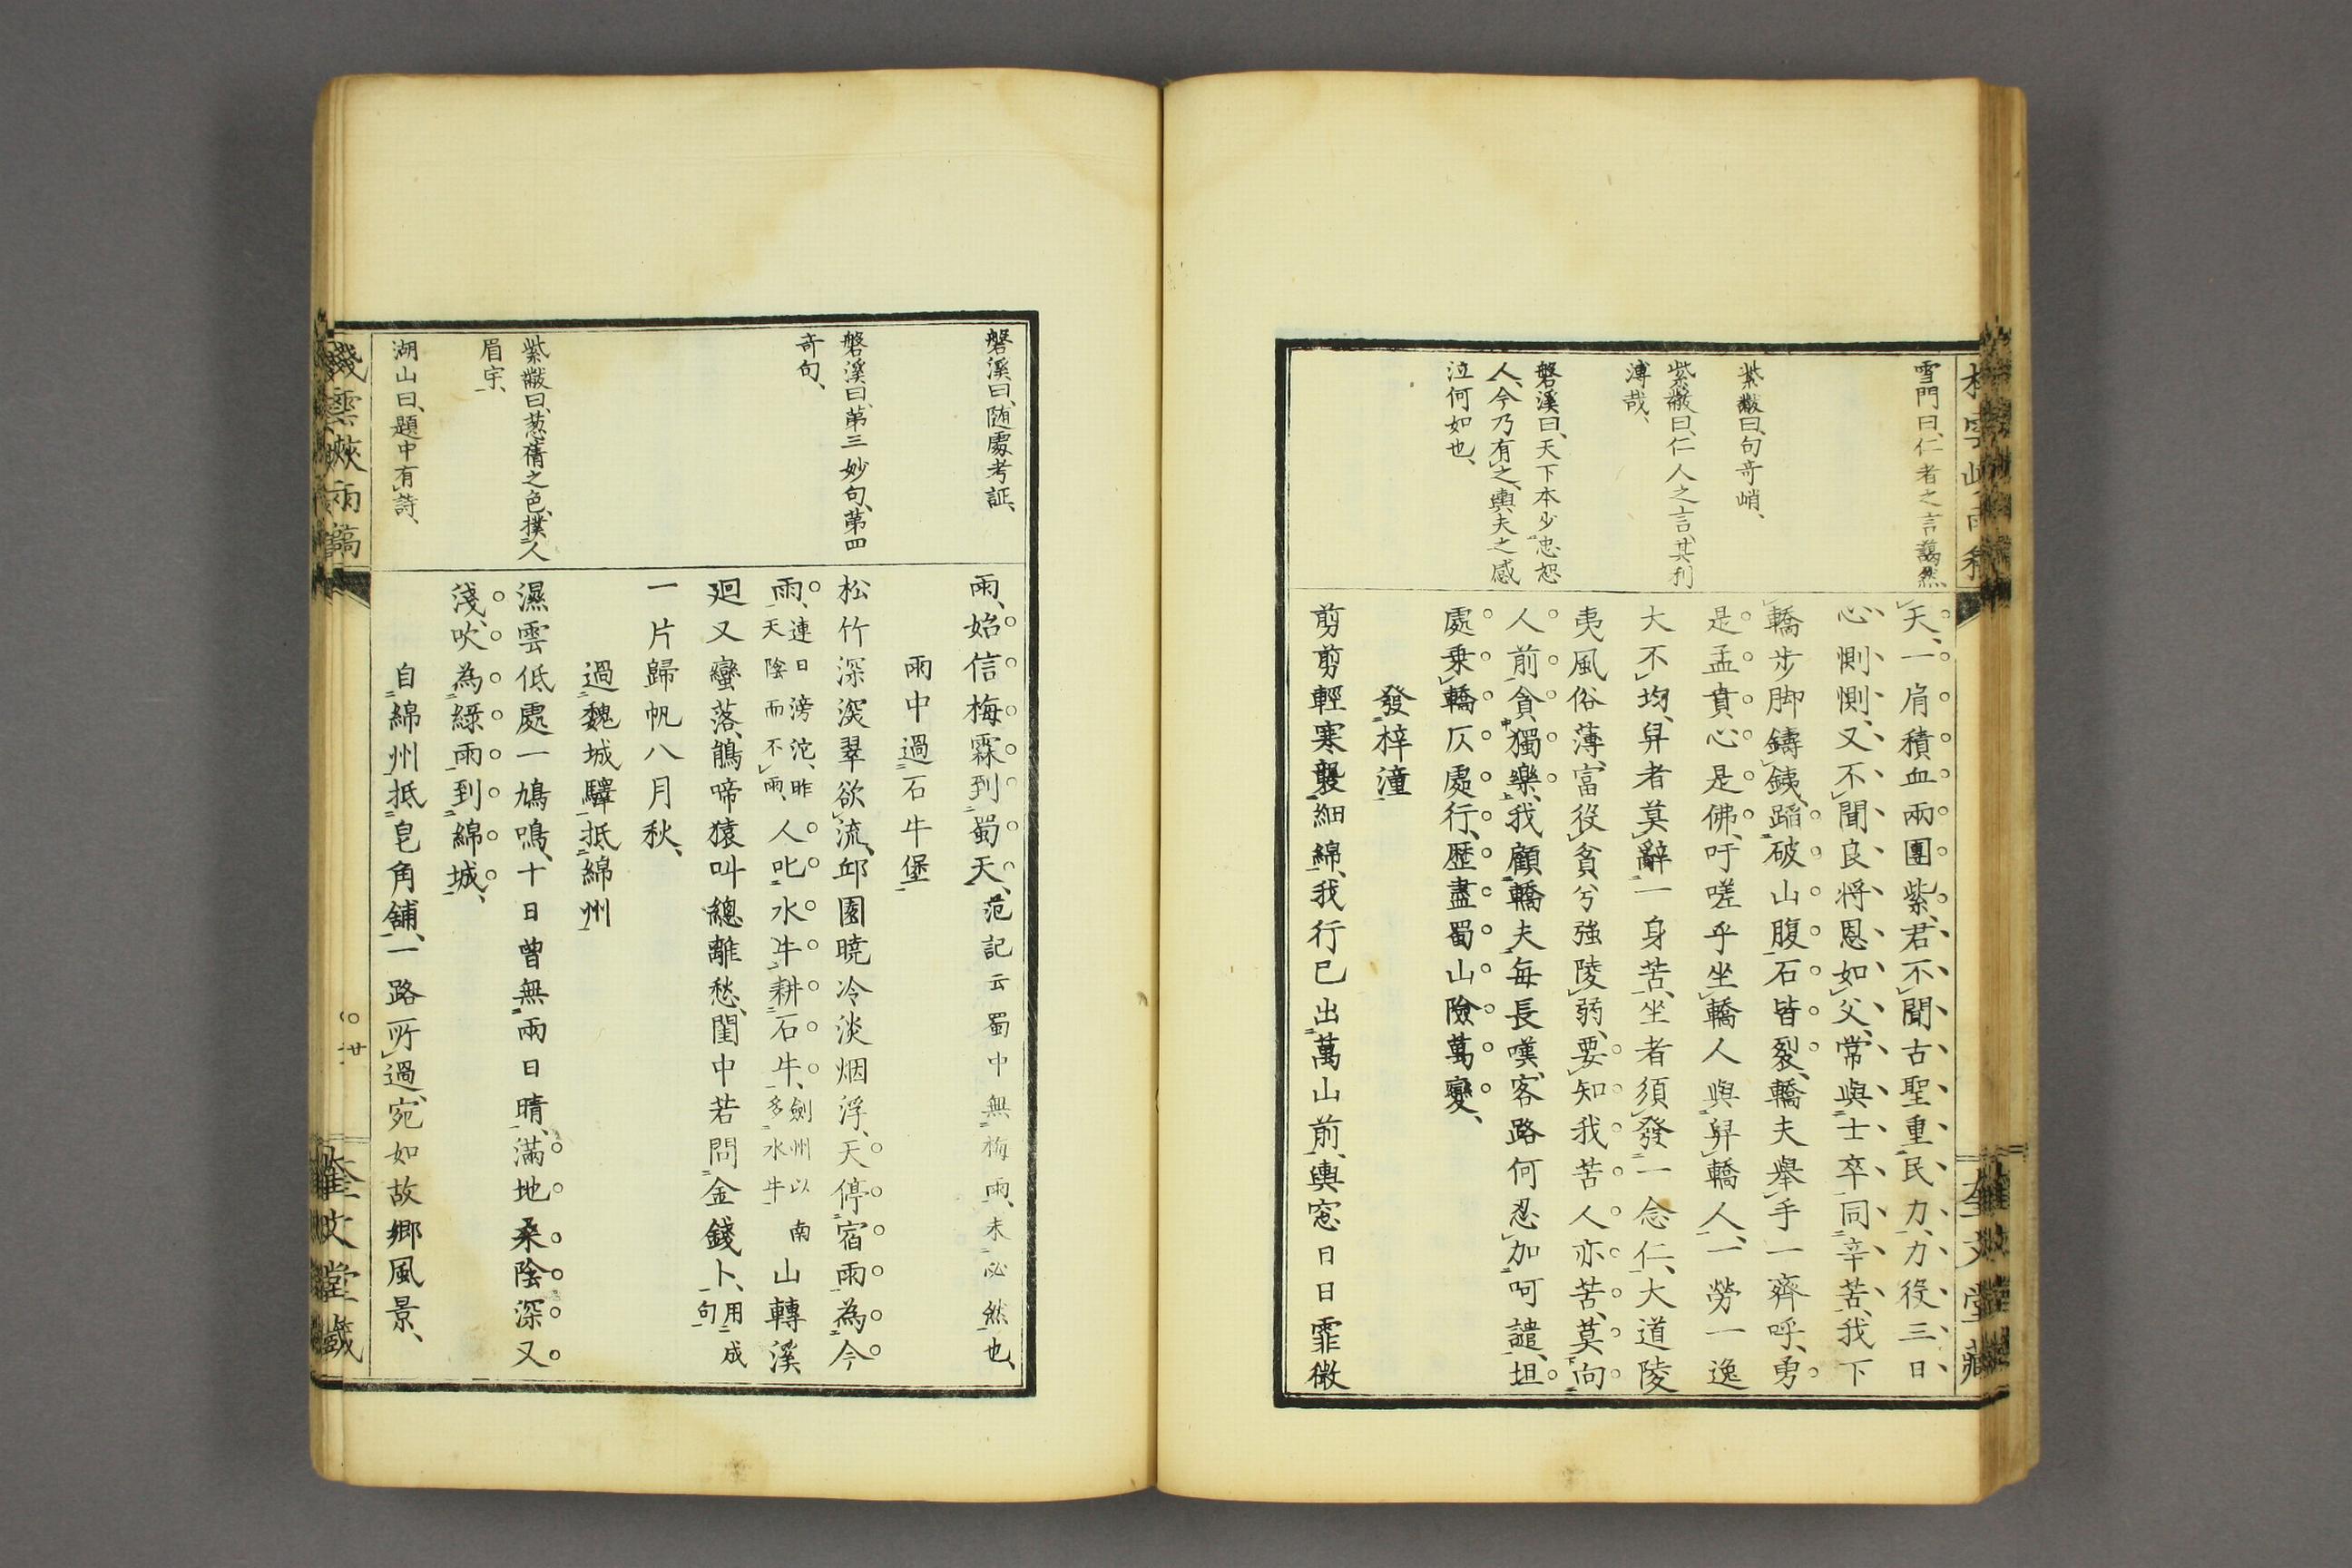 雪門曰、仁者之言藹然、
紫巖曰、句奇峭、
紫巖曰、仁人之言、其利
溥哉、
磐溪曰、天下本少忠恕
人、今乃有之、輿夫之感
泣何如也、
天、一肩積血兩團紫、君不聞古聖重民力、力役三日
心惻惻、又不聞良將恩如父、常與士卒同辛苦、我下
轎步脚鑄銕、蹈破山腹石皆裂、轎夫舉手一齊呼、勇
是孟賁心是佛、吁嗟乎坐轎人與舁轎人、一勞一逸
大不均、舁者莫辭一身苦、坐者須發一念仁、大道陵
夷風俗薄、富役貧兮強陵弱、要知我苦人亦苦、莫向
人前貪獨樂、我顧轎夫每長嘆、客路何忍加呵譴、坦
處乘轎仄處行、歷盡蜀山險萬變、
發梓潼
剪剪輕寒襲細綿、我行已出萬山前、輿窓日日霏微
磐溪曰、随處考証、
磐溪曰、第三妙句、第四
奇句、
紫巖曰、葱蒨之色、撲人
眉宇、
湖山曰、題中有詩、
雨、始信梅霖到蜀天、范記云蜀中無梅雨、未必然也、
雨中過石牛堡
松竹深深翠欲流、邱園曉冷淡烟浮、天停宿雨為今
雨、連日滂沱、昨天陰而不雨、人叱水牛耕石牛、劍州以南多水牛山轉溪
廻又蠻落、鵑啼猿叫總離愁、閨中若問金錢卜、用成句
一片歸帆八月秋、
過魏城驛抵綿州
濕雲低處一鳩鳴、十日曾無兩日晴、滿地桑陰深又
淺、吹為綠雨到綿城、
自綿州抵皂角舖、一路所過、宛如故鄉風景、
棧雲峽雨稿
〇廿一
奎文堂藏